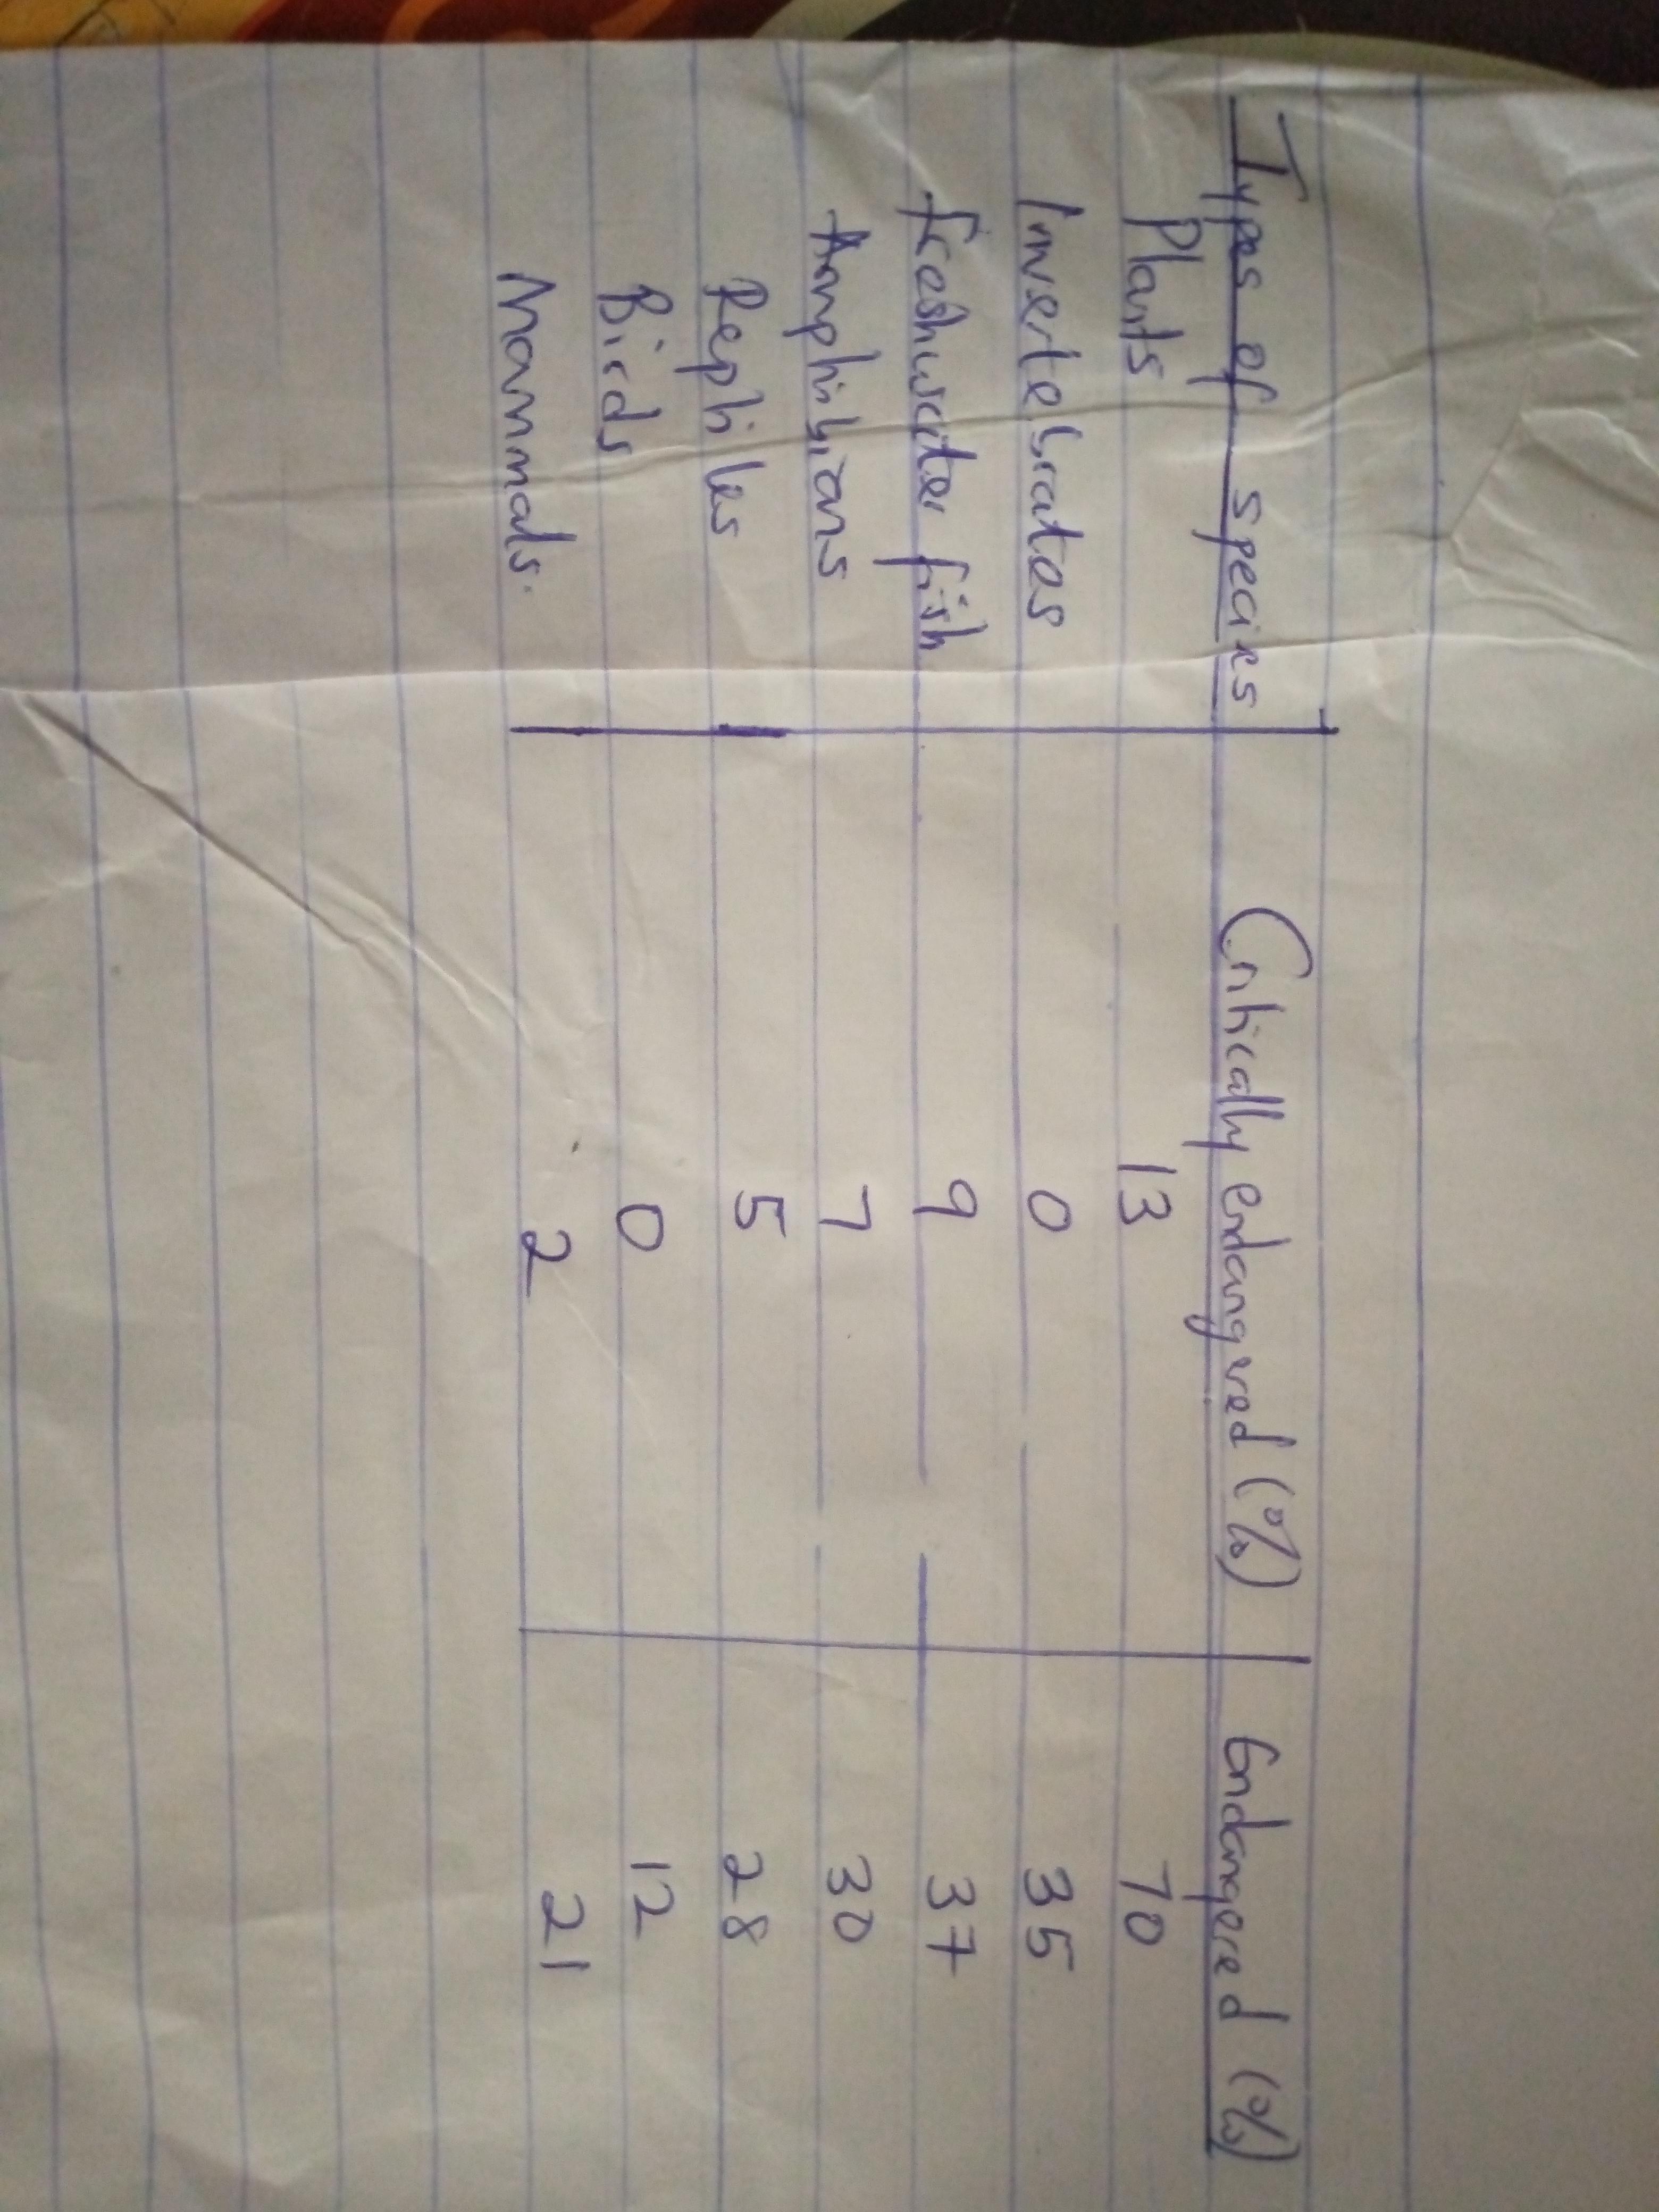 Types of species Critically endangred (%) Endangered (%)
Plants 13 70
Invertebrates 0 35
freshwater fish 9 37
Amphibians 7 30
Rephiles 5 28
Birds 0 12
Mammals. 2 21